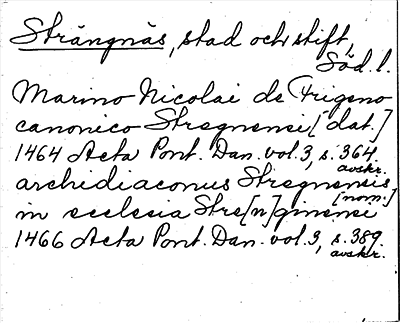 Strängnäs, stad och stift,
Söd. l.
Marino Nicolai de Frigeno
canonico Stregnensi [dat.]
1464 Acta Pont. Dan. vol. 3, s. 364.
avskr.
archidiaconus Stregnensis
[nom.]
in ecclesia Stre[n]ginensi
1466 Acta Pont. Dan. vol. 3, s. 389.
avskr.